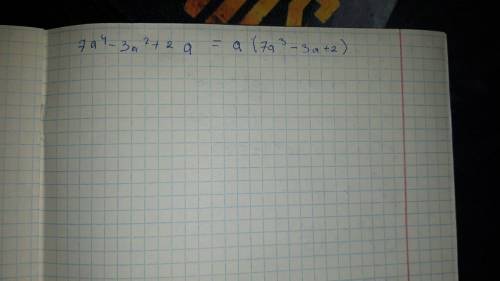 7a⁴ - 3a² + 2a = a (7a³ - 3a + 2)